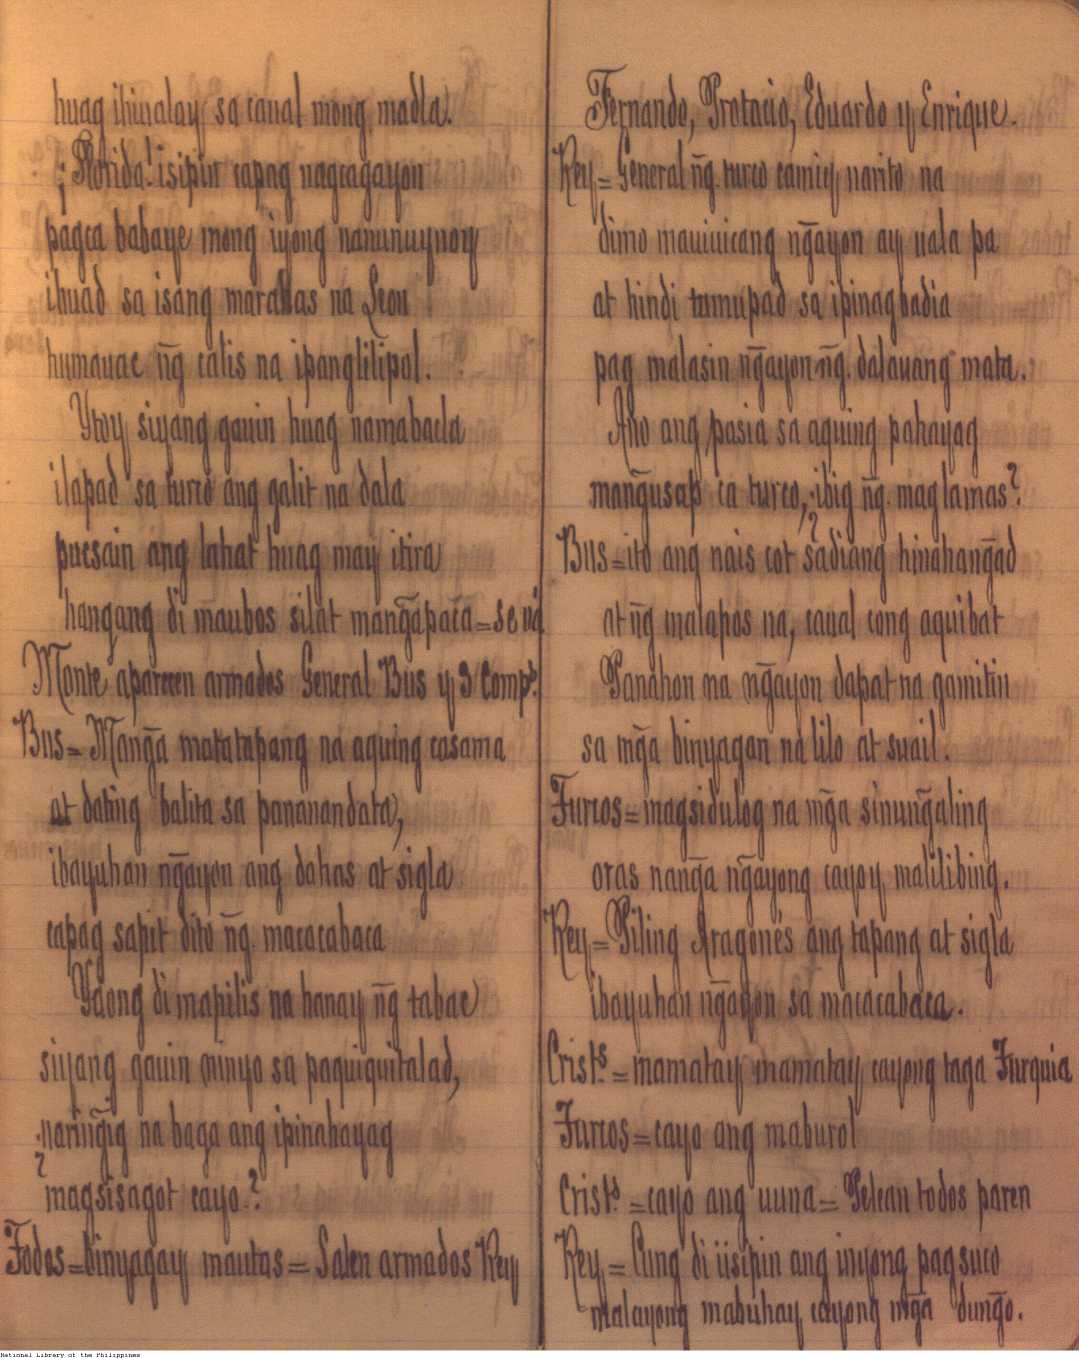 huag ihiualay sa canal mong madla.
¡Florida! isipin capag nagcagayon
pagca babaye mong iyong nanunuynoy
ihuad sa isang marahas na Leon
humauac n̄g calis na ipanglilipol.
Ytoy siyang gauin huag namabacla
ilapad sa turco ang galit na dala
pucsain ang lahat huag may itira
hangang di maubos silat man̄gapaca = se vá
Monte aparecen armados General Bus y 3 Comps.
Bus = Man̄ga matatapang na aquing casama
at dating balita sa pananandata,
ibayuhan n̄gayon ang dahas at sigla
capag sapit dito n̄g. macacabaca
Yaong di mapilis na hanay n̄g tabac
siyang gauin ninyo sa paquiquitalad,
¿narin̄gig na baga ang ipinahayag
magsisagot cayo?
Todos = binyagay mautas = Salen armados Rey
Fernando, Protacio, Eduardo y Enrique.
Rey = General n̄g. turco camiey narito na
dimo mauiuicang n̄gayon ay uala pa
at hindi tumupad sa ipinagbadia
pag malasin n̄gayon n̄g. dalauang mata.
Ano ang pasia sa aquing pahayag
man̄gusap ca turco, ¿ibig n̄g. maglamas?
Bus = ito ang nais cot sadiang hinahan̄gad
at n̄g matapos na, caual cong aquibat
Panahon na n̄gayon dapat na gamitin
sa mn̄ga binyagan na lilo at suail.
Turcos = magsidulog na mn̄ga sinun̄galing
oras nan̄ga n̄gayong cayoy malilibing.
Rey = Piling Aragonés ang tapang at sigla
ibayuhan n̄gayon sa macacabaca.
Crists. = mamatay mamatay cayong taga Turquia
Turcos = cayo ang maburol
Crists. = cayo ang uuna = Pelean todos paren
Rey = Cung di iisipin ang inyong pagsuco
malayong mabuhay cayong mn̄ga dun̄go.
National Library of the Philippines